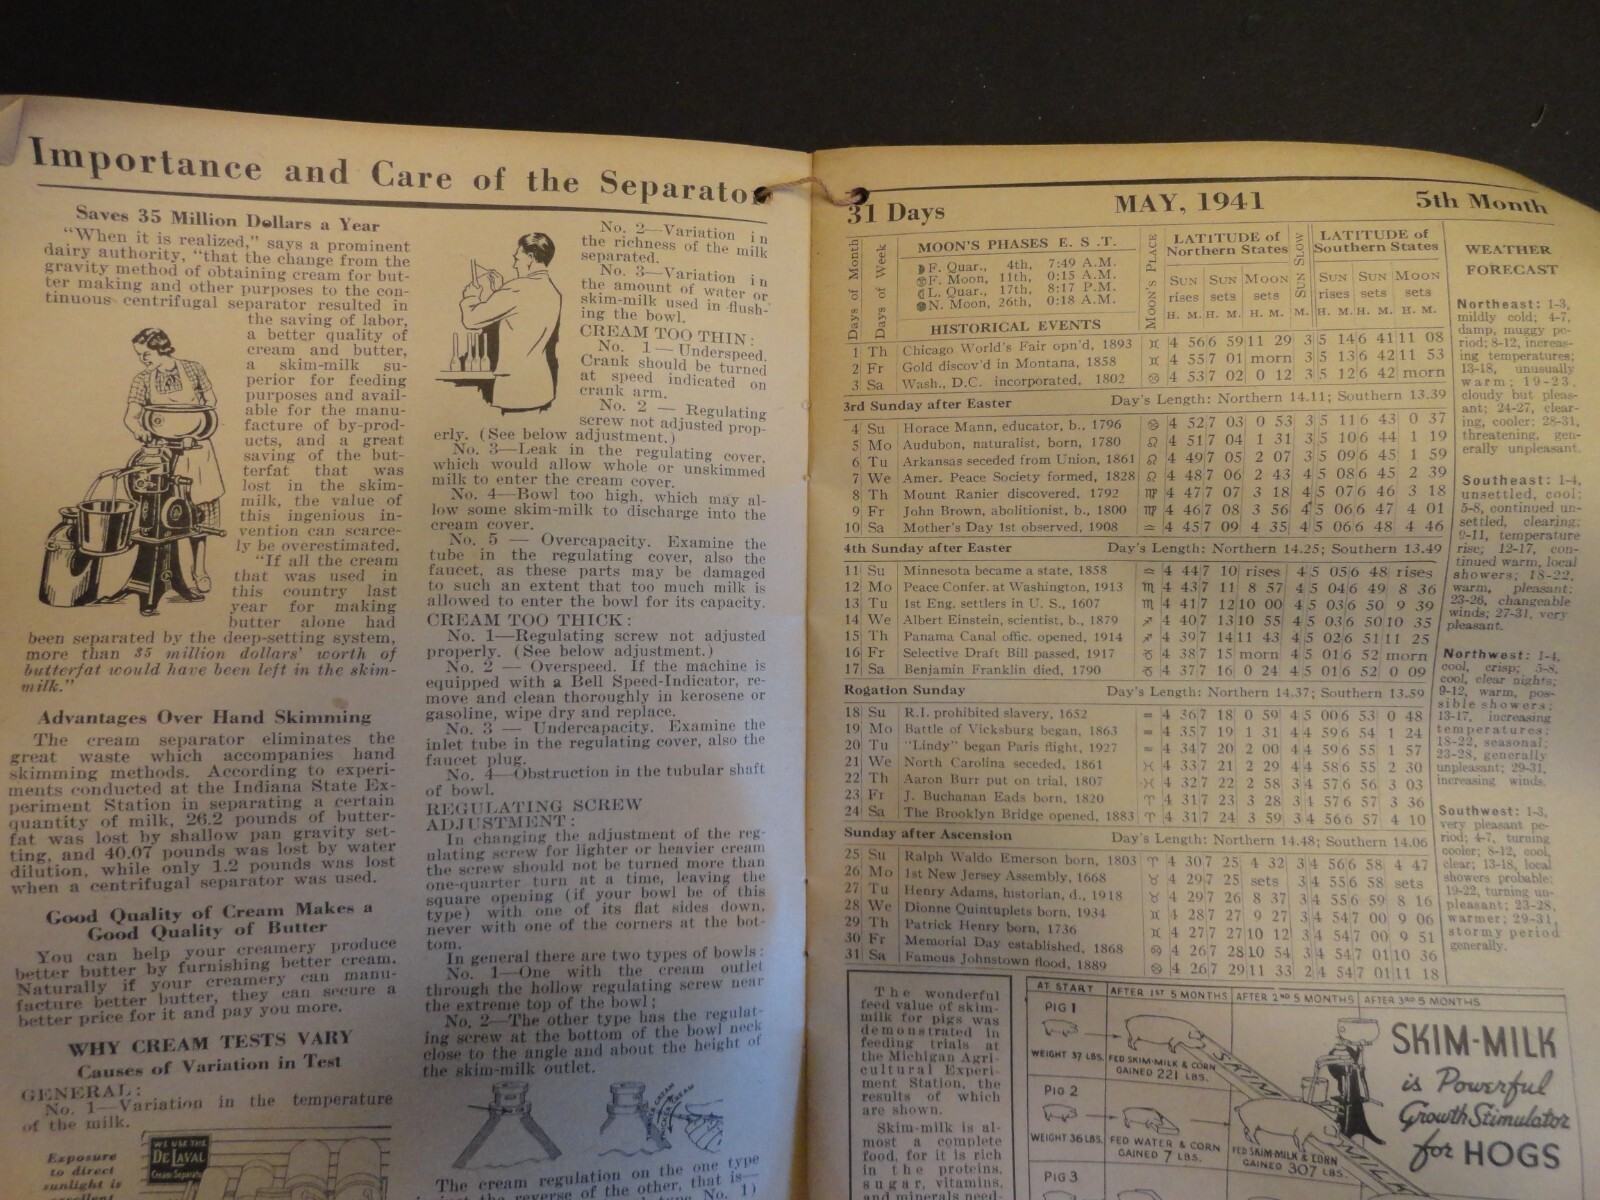 Importance and Care of the Separator
Saves 35 Million Dollars a Year
"When it is realized," says a prominent
dairy authority, "that the change from the
gravity method of obtaining cream for but-
ter making and other purposes to the con-
tinuous centrifugal separator resulted in
the saving of labor,
a better quality of
cream and butter,
a skim-milk su-
perior for feeding
purposes and avail-
able for the manu-
facture of by-prod-
ucts, and a great
saving of the but-
terfat that was
lost in the skim-
milk, the value of
this ingenious in-
vention can scarce-
ly be overestimated.
"If all the cream
that was used in
this country last
year for making
butter alone had
been separated by the deep-setting system,
more than 35 million dollars' worth of
butterfat would have been left in the skim-
milk."
Advantages Over Hand Skimming
The cream separator eliminates the
great waste which accompanies hand
skimming methods. According to experi-
ments conducted at the Indiana State Ex-
periment Station in separating a certain
quantity of milk, 26.2 pounds of butter-
fat was lost by shallow pan gravity set-
ting, and 40.07 pounds was lost by water
dilution, while only 1.2 pounds was lost
when a centrifugal separator was used.
Good Quality of Cream Makes a
Good Quality of Butter
You can help your creamery produce
better butter by furnishing better cream.
Naturally if your creamery can manu-
facture better butter, they can secure a
better price for it and pay you more.
WHY CREAM TESTS VARY
Causes of Variation in Test
GENERAL:
No. 1—Variation in the temperature
of the milk.
Exposure
to direct
sunlight is
WE USE THE
DE LAVAL
Cream Separator
No. 2—Variation in
the richness of the milk
separated.
No. 3—Variation in
the amount of water or
skim-milk used in flush-
ing the bowl.
CREAM TOO THIN:
No. 1—Underspeed.
Crank should be turned
at speed indicated on
crank arm.
No. 2 — Regulating
screw not adjusted prop-
erly. (See below adjustment.)
No. 3—Leak in the regulating cover,
which would allow whole or unskimmed
milk to enter the cream cover.
No. 4—Bowl too high, which may al-
low some skim-milk to discharge into the
cream cover.
No. 5 — Overcapacity. Examine the
tube in the regulating cover, also the
faucet, as these parts may be damaged
to such an extent that too much milk is
allowed to enter the bowl for its capacity.
CREAM TOO THICK:
No. 1—Regulating screw not adjusted
properly. (See below adjustment.)
No. 2 — Overspeed. If the machine is
equipped with a Bell Speed-Indicator, re-
move and clean thoroughly in kerosene or
gasoline, wipe dry and replace.
No. 3 — Undercapacity. Examine the
inlet tube in the regulating cover, also the
faucet plug.
No. 4—Obstruction in the tubular shaft
of bowl.
REGULATING SCREW
ADJUSTMENT:
In changing the adjustment of the reg-
ulating screw for lighter or heavier cream
the screw should not be turned more than
one-quarter turn at a time, leaving the
square opening (if your bowl be of this
type) with one of its flat sides down,
never with one of the corners at the bot-
tom.
In general there are two types of bowls:
No. 1—One with the cream outlet
through the hollow regulating screw near
the extreme top of the bowl;
No. 2—The other type has the regulat-
ing screw at the bottom of the bowl neck
close to the angle and about the height of
the skim-milk outlet.
The cream regulation on the one type
reverse of the other, that is—
No. 1)
31 Days MAY, 1941 5th Month
Days of Month
Days of Week
MOON'S PHASES E. S. T.
F. Quar., 4th, 7:49 A.M.
F. Moon, 11th, 0:15 A.M.
L. Quar., 17th, 8:17 P.M.
N. Moon, 26th, 0:18 A.M.
HISTORICAL EVENTS
MOON'S PLACE
LATITUDE of Northern States
SUN rises H. M. SUN sets H. M. MOON sets H. M.
SUN SLOW M.
LATITUDE of Southern States
SUN rises H. M. SUN sets H. M. MOON sets H. M.
1 Th Chicago World's Fair opn'd, 1893 ♊ 4 56 6 59 11 29 3 5 14 6 41 11 08
2 Fr Gold discov'd in Montana, 1858 ♊ 4 55 7 01 morn 3 5 13 6 42 11 53
3 Sa Wash., D.C. incorporated, 1802 ♋ 4 53 7 02 0 12 3 5 12 6 42 morn
3rd Sunday after Easter Day's Length: Northern 14.11; Southern 13.39
4 Su Horace Mann, educator, b., 1796 ♋ 4 52 7 03 0 53 3 5 11 6 43 0 37
5 Mo Audubon, naturalist, born, 1780 ♌ 4 51 7 04 1 31 3 5 10 6 44 1 19
6 Tu Arkansas seceded from Union, 1861 ♌ 4 49 7 05 2 07 3 5 09 6 45 1 59
7 We Amer. Peace Society formed, 1828 ♌ 4 48 7 06 2 43 4 5 08 6 45 2 39
8 Th Mount Ranier discovered, 1792 ♍ 4 47 7 07 3 18 4 5 07 6 46 3 18
9 Fr John Brown, abolitionist, b., 1800 ♍ 4 46 7 08 3 56 4 5 06 6 47 4 01
10 Sa Mother's Day 1st observed, 1908 ♎ 4 45 7 09 4 35 4 5 06 6 48 4 46
4th Sunday after Easter Day's Length: Northern 14.25; Southern 13.49
11 Su Minnesota became a state, 1858 ♎ 4 44 7 10 rises 4 5 05 6 48 rises
12 Mo Peace Confer. at Washington, 1913 ♏ 4 43 7 11 8 57 4 5 04 6 49 8 36
13 Tu 1st Eng. settlers in U. S., 1607 ♏ 4 41 7 12 10 00 4 5 03 6 50 9 39
14 We Albert Einstein, scientist, b., 1879 ♐ 4 40 7 13 10 55 4 5 03 6 50 10 35
15 Th Panama Canal offic. opened, 1914 ♐ 4 39 7 14 11 43 4 5 02 6 51 11 25
16 Fr Selective Draft Bill passed, 1917 ♑ 4 38 7 15 morn 4 5 01 6 52 morn
17 Sa Benjamin Franklin died, 1790 ♑ 4 37 7 16 0 24 4 5 01 6 52 0 09
Rogation Sunday Day's Length: Northern 14.37; Southern 13.59
18 Su R.I. prohibited slavery, 1652 ♒ 4 36 7 18 0 59 4 5 00 6 53 0 48
19 Mo Battle of Vicksburg began, 1863 ♒ 4 35 7 19 1 31 4 4 59 6 54 1 24
20 Tu "Lindy" began Paris flight, 1927 ♒ 4 34 7 20 2 00 4 4 59 6 55 1 57
21 We North Carolina seceded, 1861 ♓ 4 33 7 21 2 29 4 4 58 6 55 2 30
22 Th Aaron Burr put on trial, 1807 ♓ 4 32 7 22 2 58 3 4 57 6 56 3 03
23 Fr J. Buchanan Eads born, 1820 ♈ 4 31 7 23 3 28 3 4 57 6 57 3 36
24 Sa The Brooklyn Bridge opened, 1883 ♈ 4 31 7 24 3 59 3 4 56 6 57 4 10
Sunday after Ascension Day's Length: Northern 14.48; Southern 14.06
25 Su Ralph Waldo Emerson born, 1803 ♈ 4 30 7 25 4 32 3 4 56 6 58 4 47
26 Mo 1st New Jersey Assembly, 1668 ♉ 4 29 7 25 sets 3 4 55 6 58 sets
27 Tu Henry Adams, historian, d., 1918 ♉ 4 29 7 26 8 37 3 4 55 6 59 8 16
28 We Dionne Quintuplets born, 1934 ♊ 4 28 7 27 9 27 3 4 54 7 00 9 06
29 Th Patrick Henry born, 1736 ♊ 4 27 7 27 10 12 3 4 54 7 00 9 51
30 Fr Memorial Day established, 1868 ♋ 4 26 7 28 10 54 3 4 54 7 01 10 36
31 Sa Famous Johnstown flood, 1889 ♋ 4 26 7 29 11 33 2 4 54 7 01 11 18
WEATHER
FORECAST
Northeast: 1-3,
mildly cold; 4-7,
damp, muggy pe-
riod; 8-12, increas-
ing temperatures;
13-18, unusually
warm; 19-23,
cloudy but pleas-
ant; 24-27, clear-
ing, cooler; 28-31,
threatening, gen-
erally unpleasant.
Southeast: 1-4,
unsettled, cool;
5-8, continued un-
settled, clearing;
9-11, temperature
rise; 12-17, con-
tinued warm, local
showers; 18-22,
warm, pleasant;
23-26, changeable
winds; 27-31, very
pleasant.
Northwest: 1-4,
cool, crisp; 5-8,
cool, clear nights;
9-12, warm, pos-
sible showers;
13-17, increasing
temperatures;
18-22, seasonal;
23-28, generally
unpleasant; 29-31,
increasing winds.
Southwest: 1-3,
very pleasant pe-
riod; 4-7, turning
cooler; 8-12, cool,
clear; 13-18, local
showers probable;
19-22, turning un-
pleasant; 23-28,
warmer; 29-31,
stormy period
generally.
The wonderful
feed value of skim-
milk for pigs was
demonstrated in
feeding trials at
the Michigan Agri-
cultural Experi-
ment Station, the
results of which
are shown.
Skim-milk is al-
most a complete
food, for it is rich
in the proteins,
sugar, vitamins,
and minerals need-
AT START AFTER 1ST 5 MONTHS AFTER 2ND 5 MONTHS AFTER 3RD 5 MONTHS
PIG 1
WEIGHT 37 LBS.
FED SKIM-MILK & CORN
GAINED 221 LBS.
PIG 2
WEIGHT 36 LBS.
FED WATER & CORN
GAINED 7 LBS.
FED SKIM-MILK & CORN
GAINED 307 LBS.
PIG 3
SKIM
MILK
SKIM-MILK
is Powerful
Growth Stimulator
for HOGS